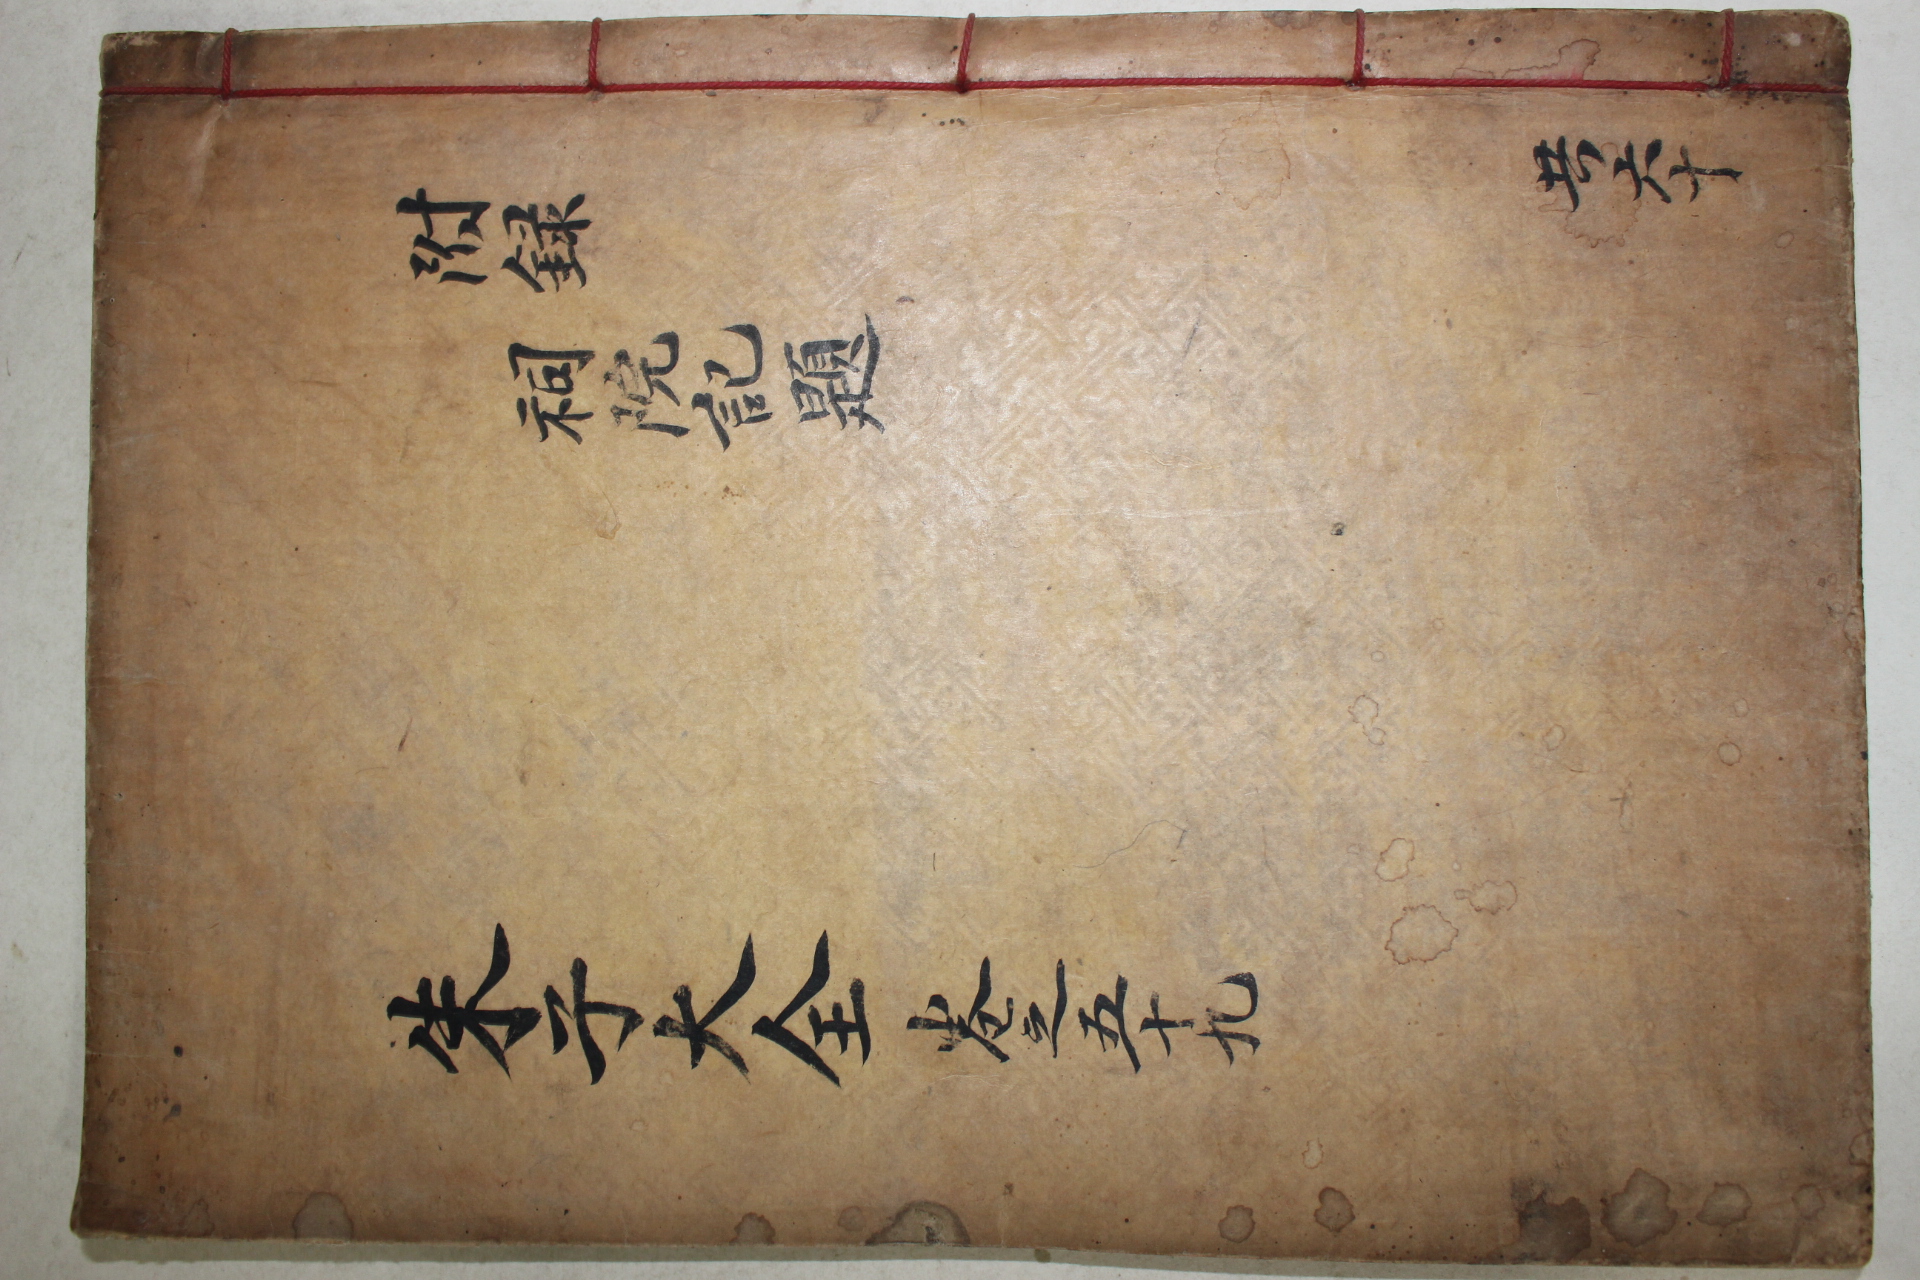 附録
祠院記題
共六十
朱子大全 卷之五十九